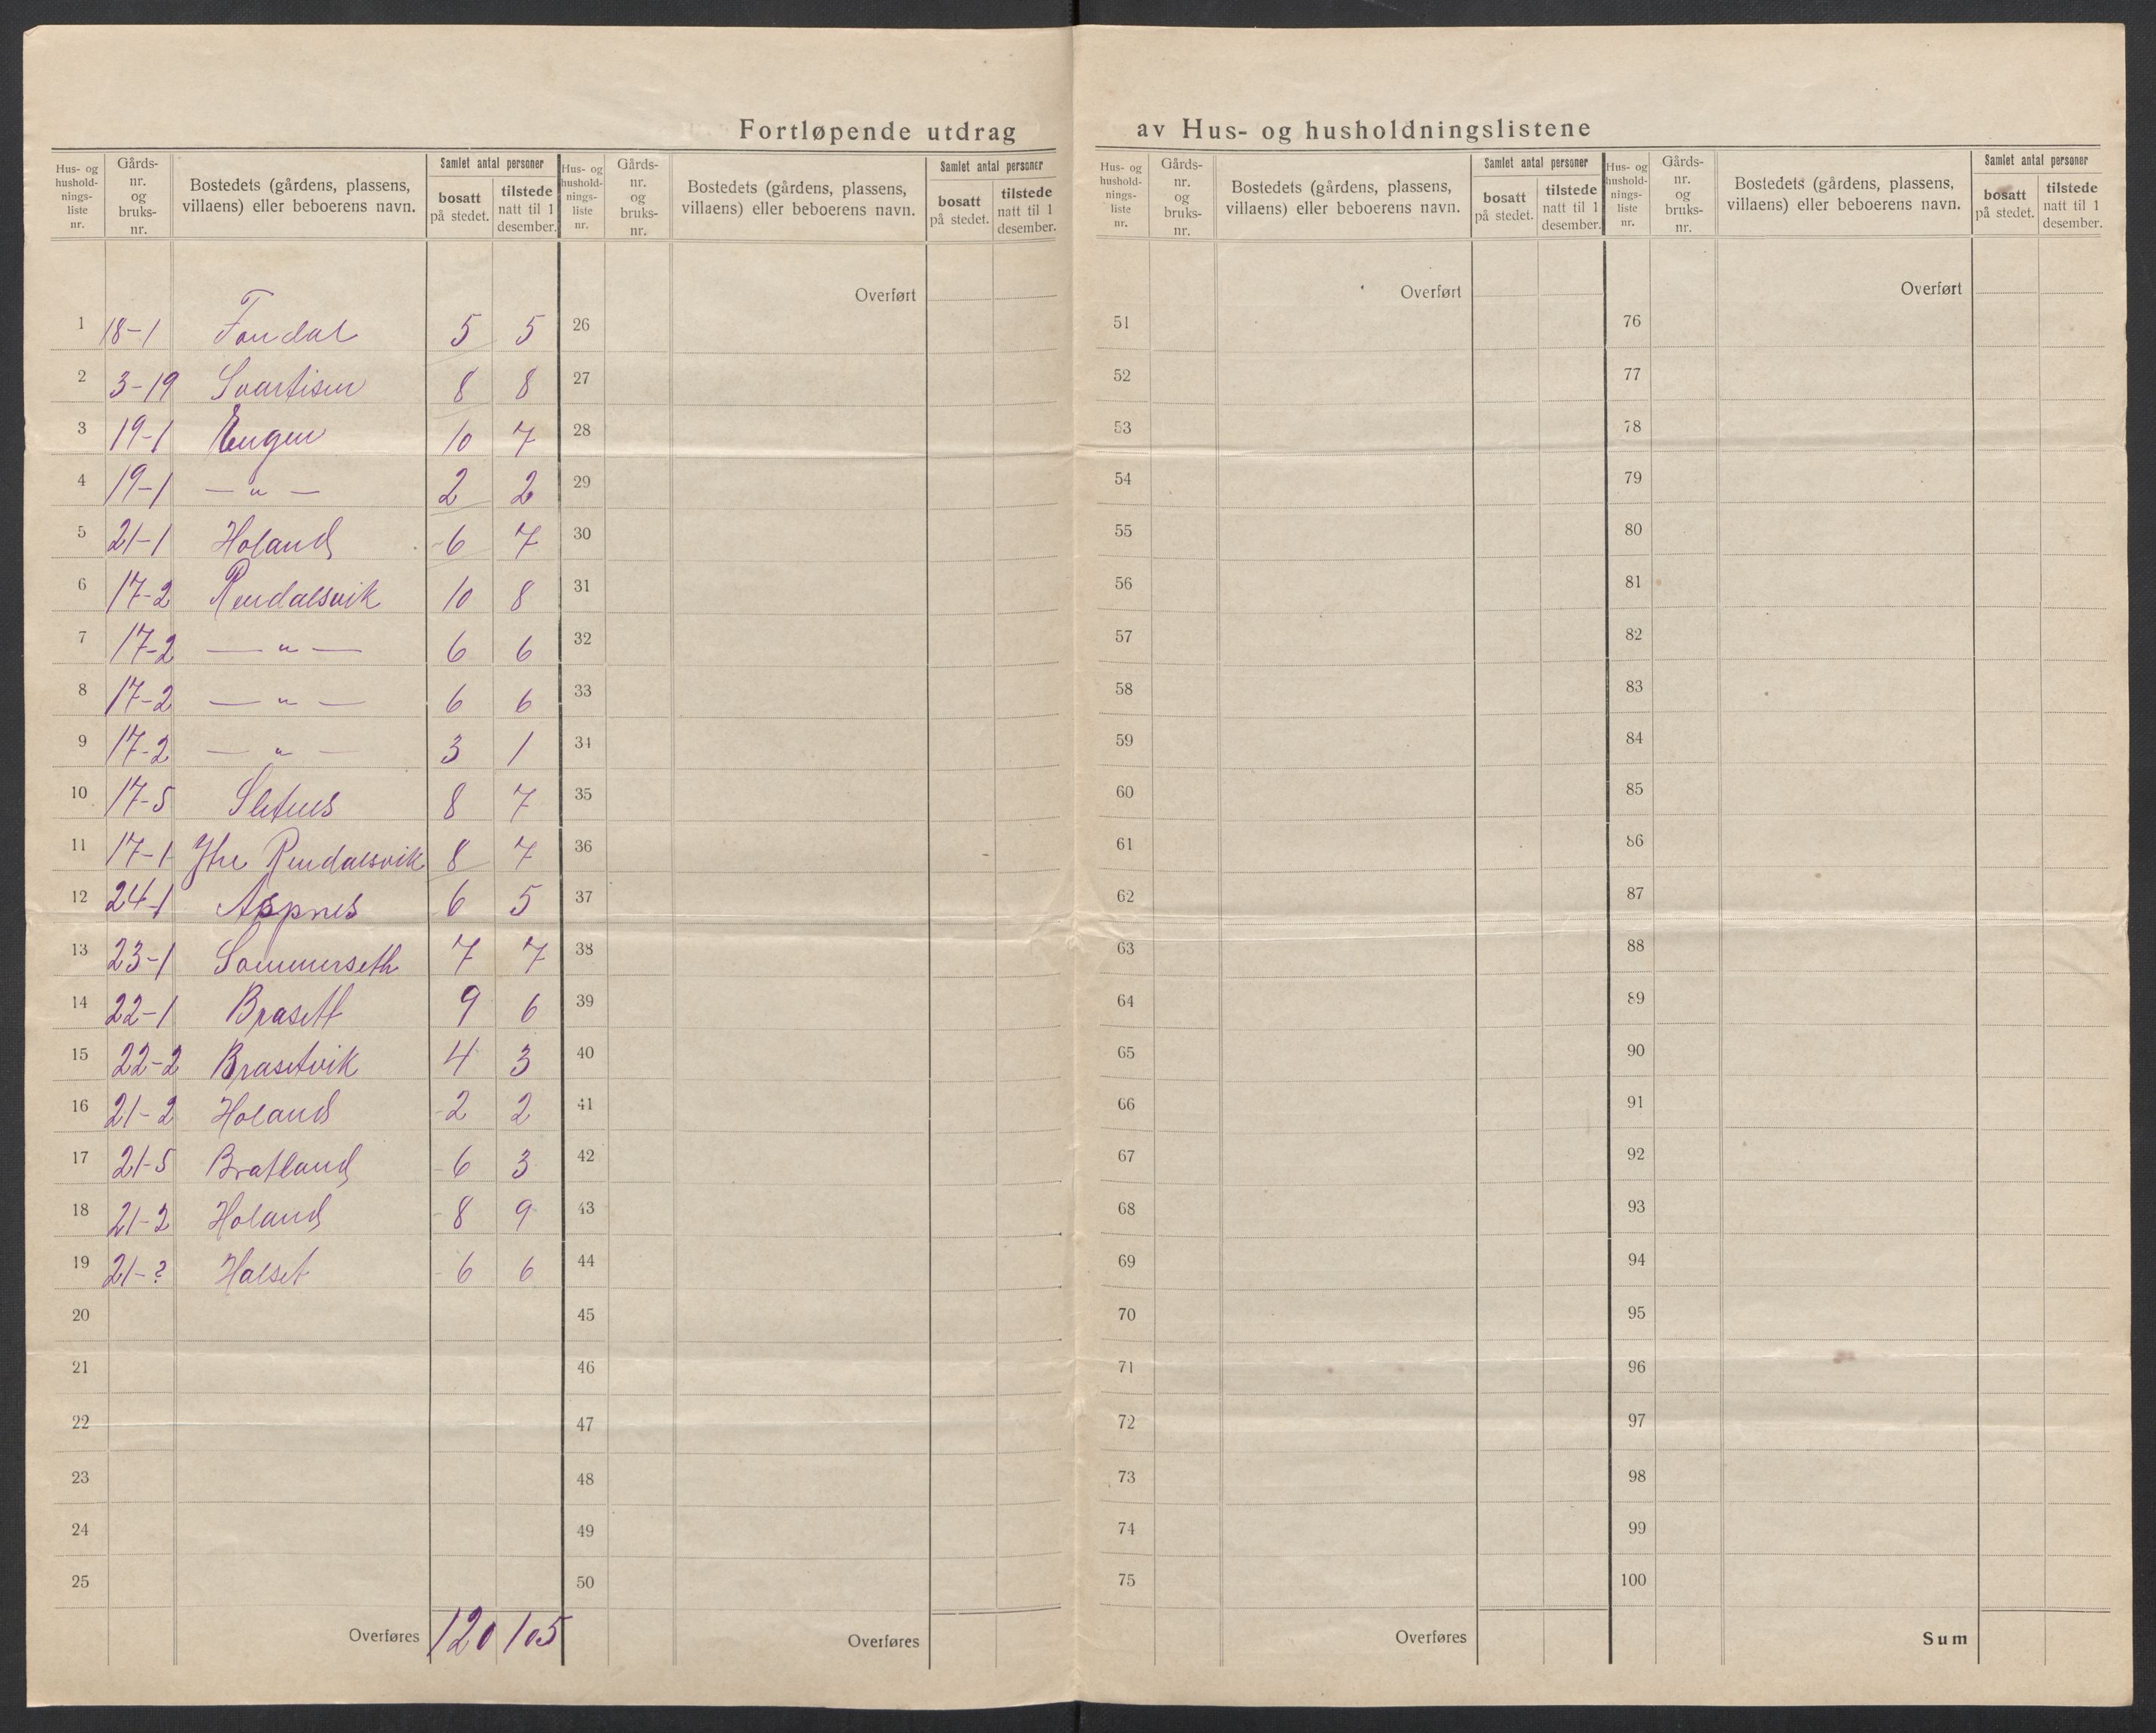 Fortløpende utdrag av Hus- og husholdningslistene
Hus- og husholdnings-liste nr. Gårds-nr. og bruks-nr. Bostedets (gårdens, plassens, villaens) eller beboerens navn. Samlet antal personer bosatt på stedet. tilstede natt til 1 desember.
1 18-1 Fondal 5 5
2 3-19 Svartisen 8 8
3 19-1 Engen 10 7
4 19-1 — " — 2 2
5 21-1 Holand 6 7
6 17-2 Rendalsvik 10 8
7 17-2 — " — 6 6
8 17-2 — " — 6 6
9 17-2 — " — 3 1
10 17-5 Sletnes 8 7
11 17-1 Ytre Rendalsvik 8 7
12 24-1 Aspnes 6 5
13 23-1 Sommerseth 7 7
14 22-1 Brasett 9 6
15 22-2 Brasetvik 4 3
16 21-2 Holand 2 2
17 21-5 Bratland 6 3
18 21-2 Holand 8 9
19 21-? Halset 6 6
20
21
22
23
24
25
Overføres 120 105
Hus- og husholdnings-liste nr. Gårds-nr. og bruks-nr. Bostedets (gårdens, plassens, villaens) eller beboerens navn. Samlet antal personer bosatt på stedet. tilstede natt til 1 desember.
Overført
26
27
28
29
30
31
32
33
34
35
36
37
38
39
40
41
42
43
44
45
46
47
48
49
50
Overføres
Hus- og husholdnings-liste nr. Gårds-nr. og bruks-nr. Bostedets (gårdens, plassens, villaens) eller beboerens navn. Samlet antal personer bosatt på stedet. tilstede natt til 1 desember.
Overført
51
52
53
54
55
56
57
58
59
60
61
62
63
64
65
66
67
68
69
70
71
72
73
74
75
Overføres
Hus- og husholdnings-liste nr. Gårds-nr. og bruks-nr. Bostedets (gårdens, plassens, villaens) eller beboerens navn. Samlet antal personer bosatt på stedet. tilstede natt til 1 desember.
Overført
76
77
78
79
80
81
82
83
84
85
86
87
88
89
90
91
92
93
94
95
96
97
98
99
100
Sum